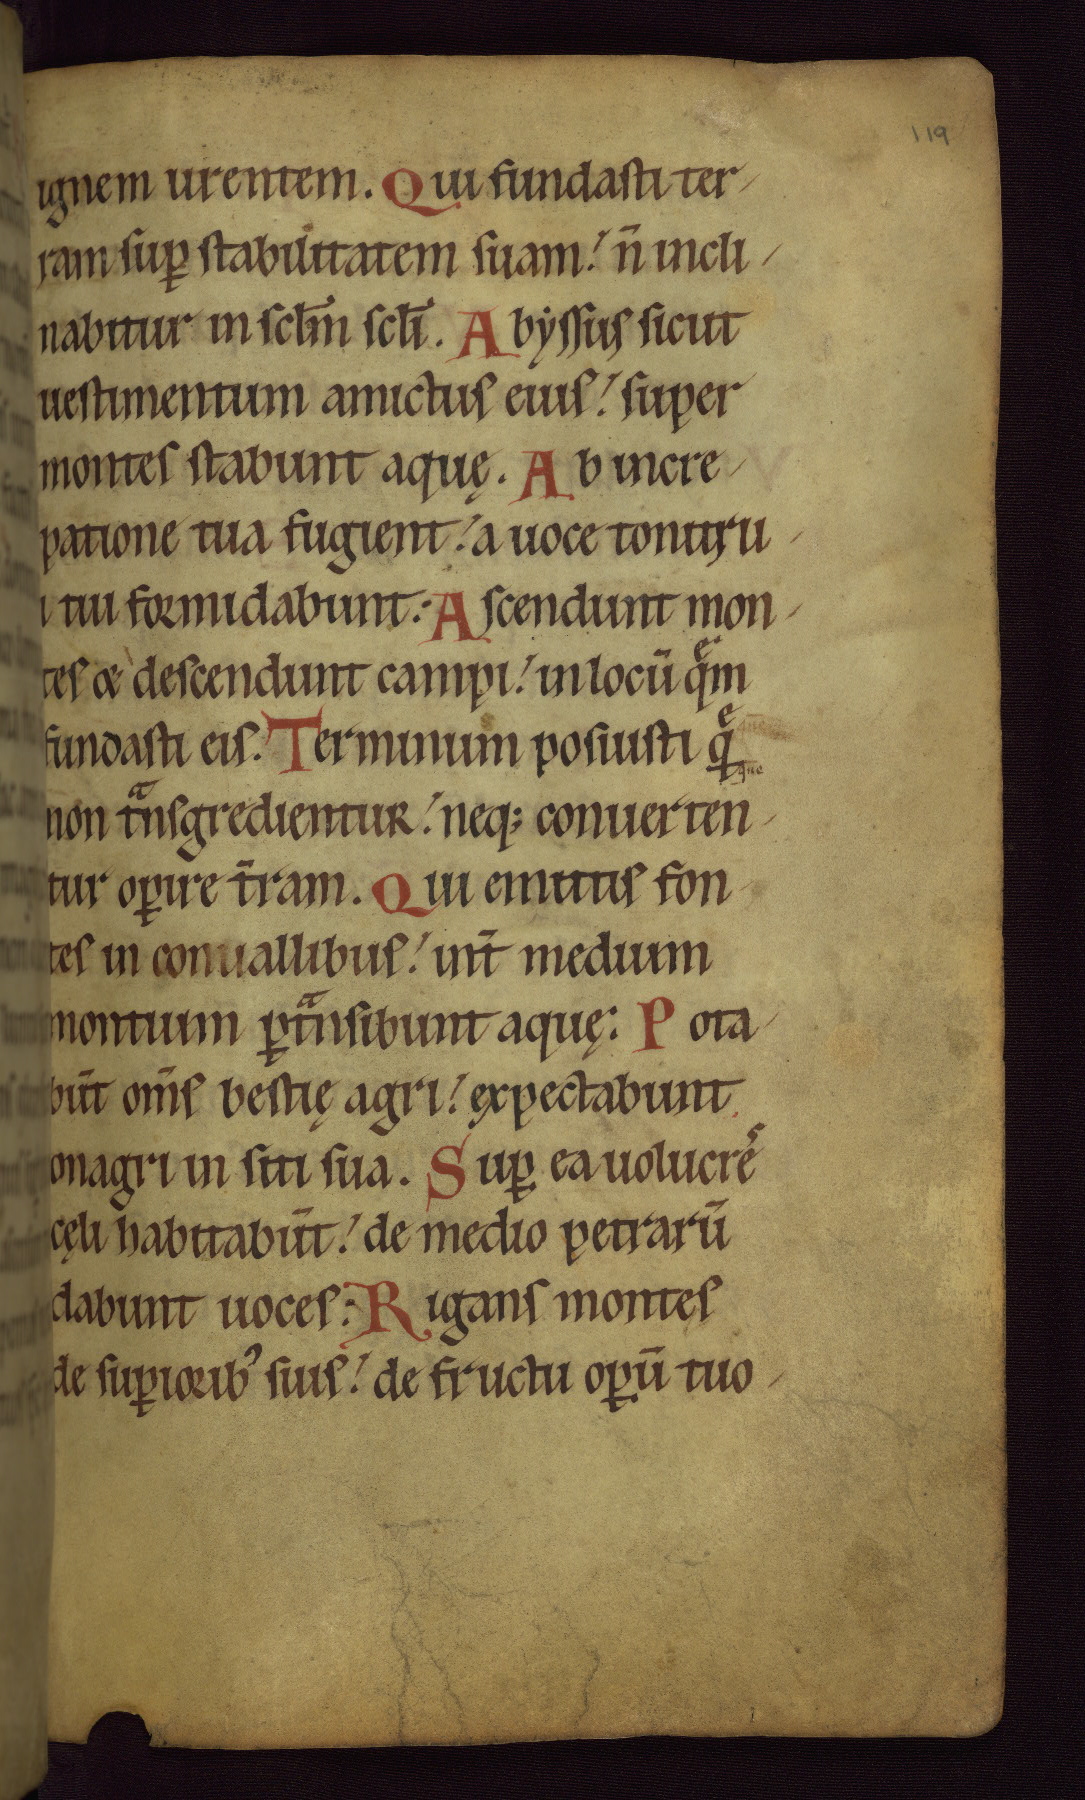 119
ignem urentem. Qui fundasti ter-
ram suꝑ stabilitatem suam! n̄ incli-
nabitur in scl̄m scl̄i. Abẏssus sicut
uestimentum amictus eius! super
montes stabunt aquę. Ab incre-
patione tua fugient! a uoce tonitru-
i tui formidabunt. Ascendunt mon-
tes & descendunt campi! in locū quē
fundasti eis. Terminum posuisti quē
non tͣnsgredientur! neq; conuerten-
tur oꝑire t̄ram. Qui emittis fon-
tes in conuallibus! int̄ medium
montium ꝑtͣnsibunt aquę: Pota-
būt om̄s bestię agri! exꝑectabunt
onagri in siti sua. Suꝑ ea uolucres
cęli habitabūt! de medio petrarū
dabunt uoces: Rigans montes
de suꝑiorib' suis! de fructu oꝑū tuo-